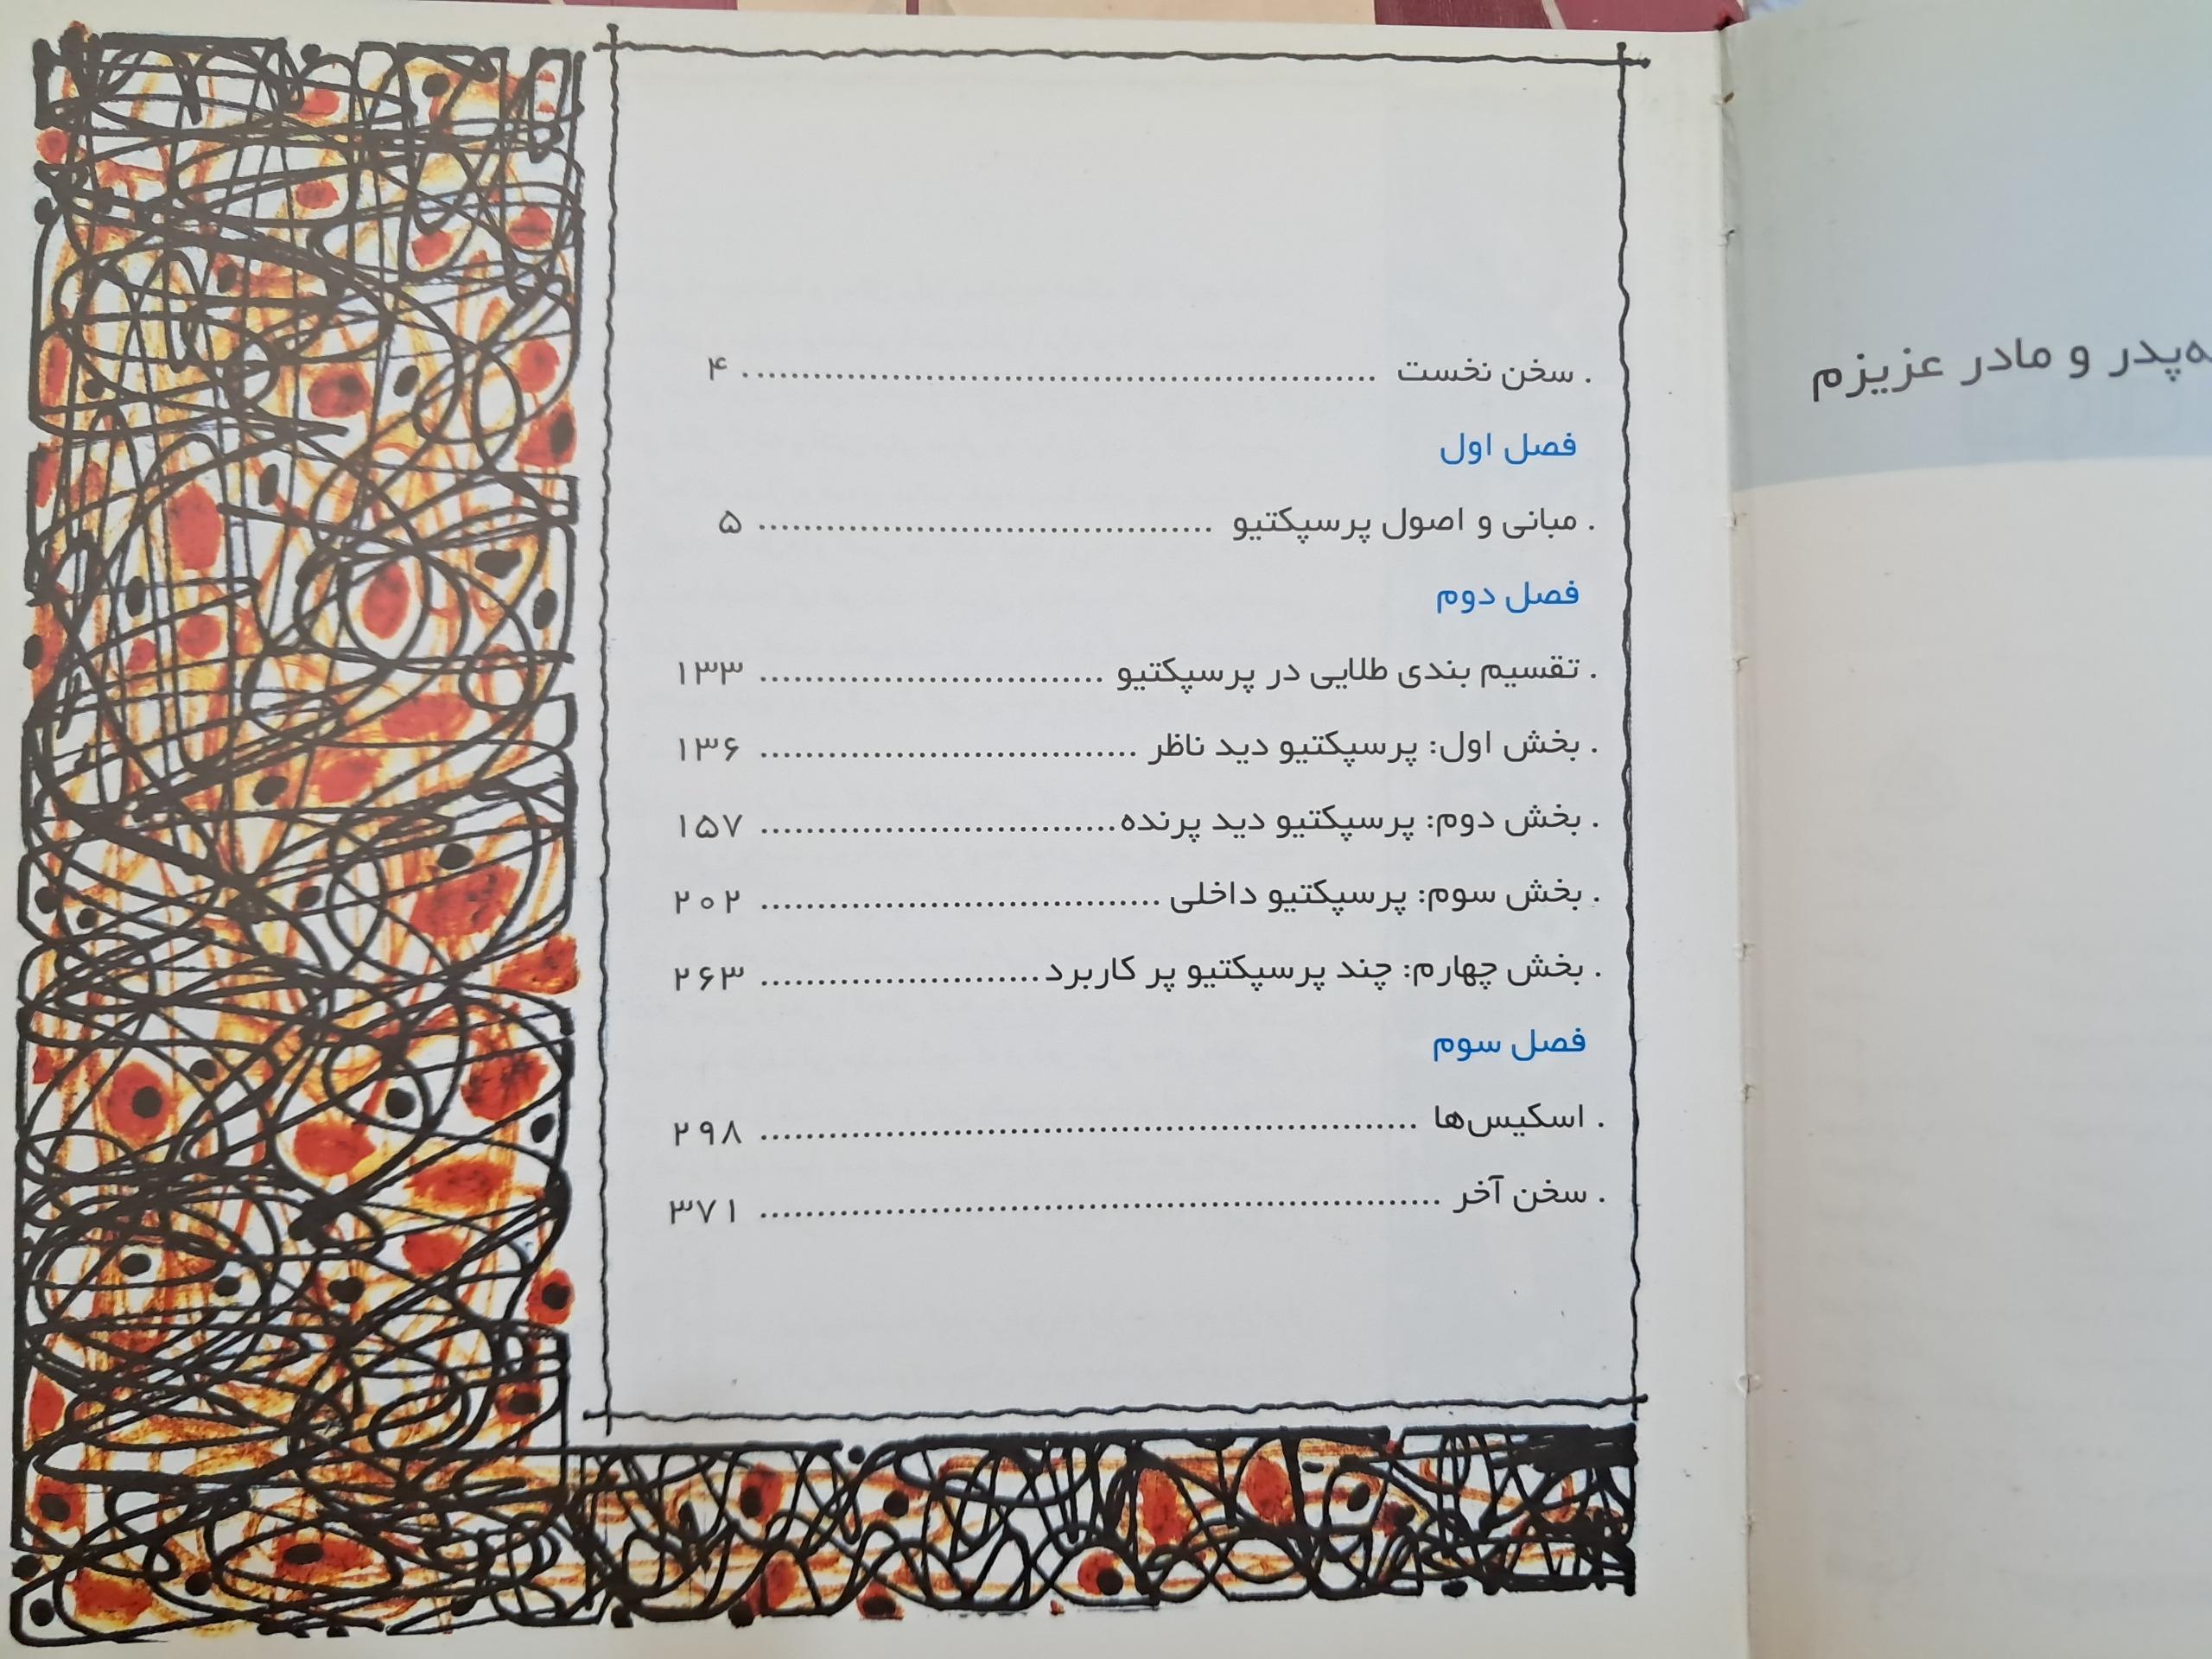 پدر و مادر عزیزم
. سخن نخست ........................................................ ۴
فصل اول
. مبانی و اصول پرسپکتیو ........................................ ۵
فصل دوم
. تقسیم بندی طلایی در پرسپکتیو ............................... ۱۳۳
. بخش اول: پرسپکتیو دید ناظر .................................. ۱۳۶
. بخش دوم: پرسپکتیو دید پرنده................................ ۱۵۷
. بخش سوم: پرسپکتیو داخلی .................................... ۲۰۲
. بخش چهارم: چند پرسپکتیو پر کاربرد......................... ۲۶۳
فصل سوم
. اسکیس‌ها ........................................................... ۲۹۸
. سخن آخر ............................................................ ۳۷۱